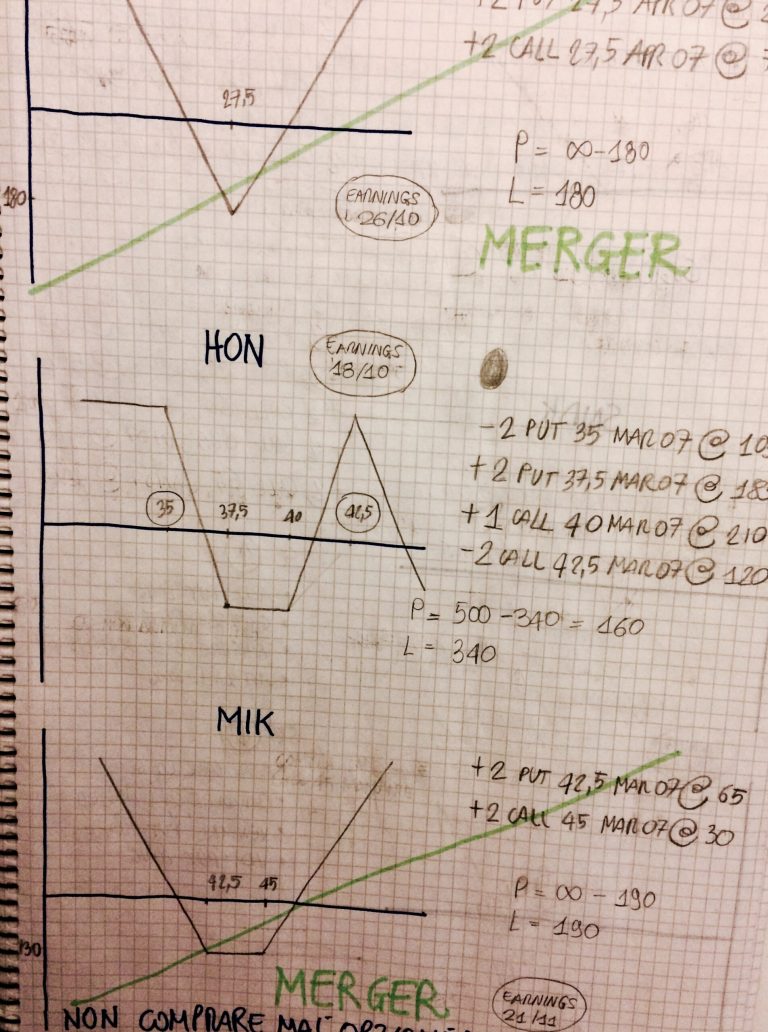 +2 PUT 27,5 APR 07 @
+2 CALL 27,5 APR 07 @
27,5
P = ∞-180
L = 180
180
EARNINGS
26/10
MERGER
HON
EARNINGS
18/10
-2 PUT 35 MAR 07 @
+2 PUT 37,5 MAR 07 @
35 37,5 40 42,5
+1 CALL 40 MAR 07 @ 210
-2 CALL 42,5 MAR 07 @ 120
P = 500 -340 = 160
L = 340
MIK
+2 PUT 42,5 MAR 07 @ 65
+2 CALL 45 MAR 07 @ 30
42,5 45
P = ∞ - 190
L = 190
MERGER
EARNINGS
21/11
NON COMPRARE MAI